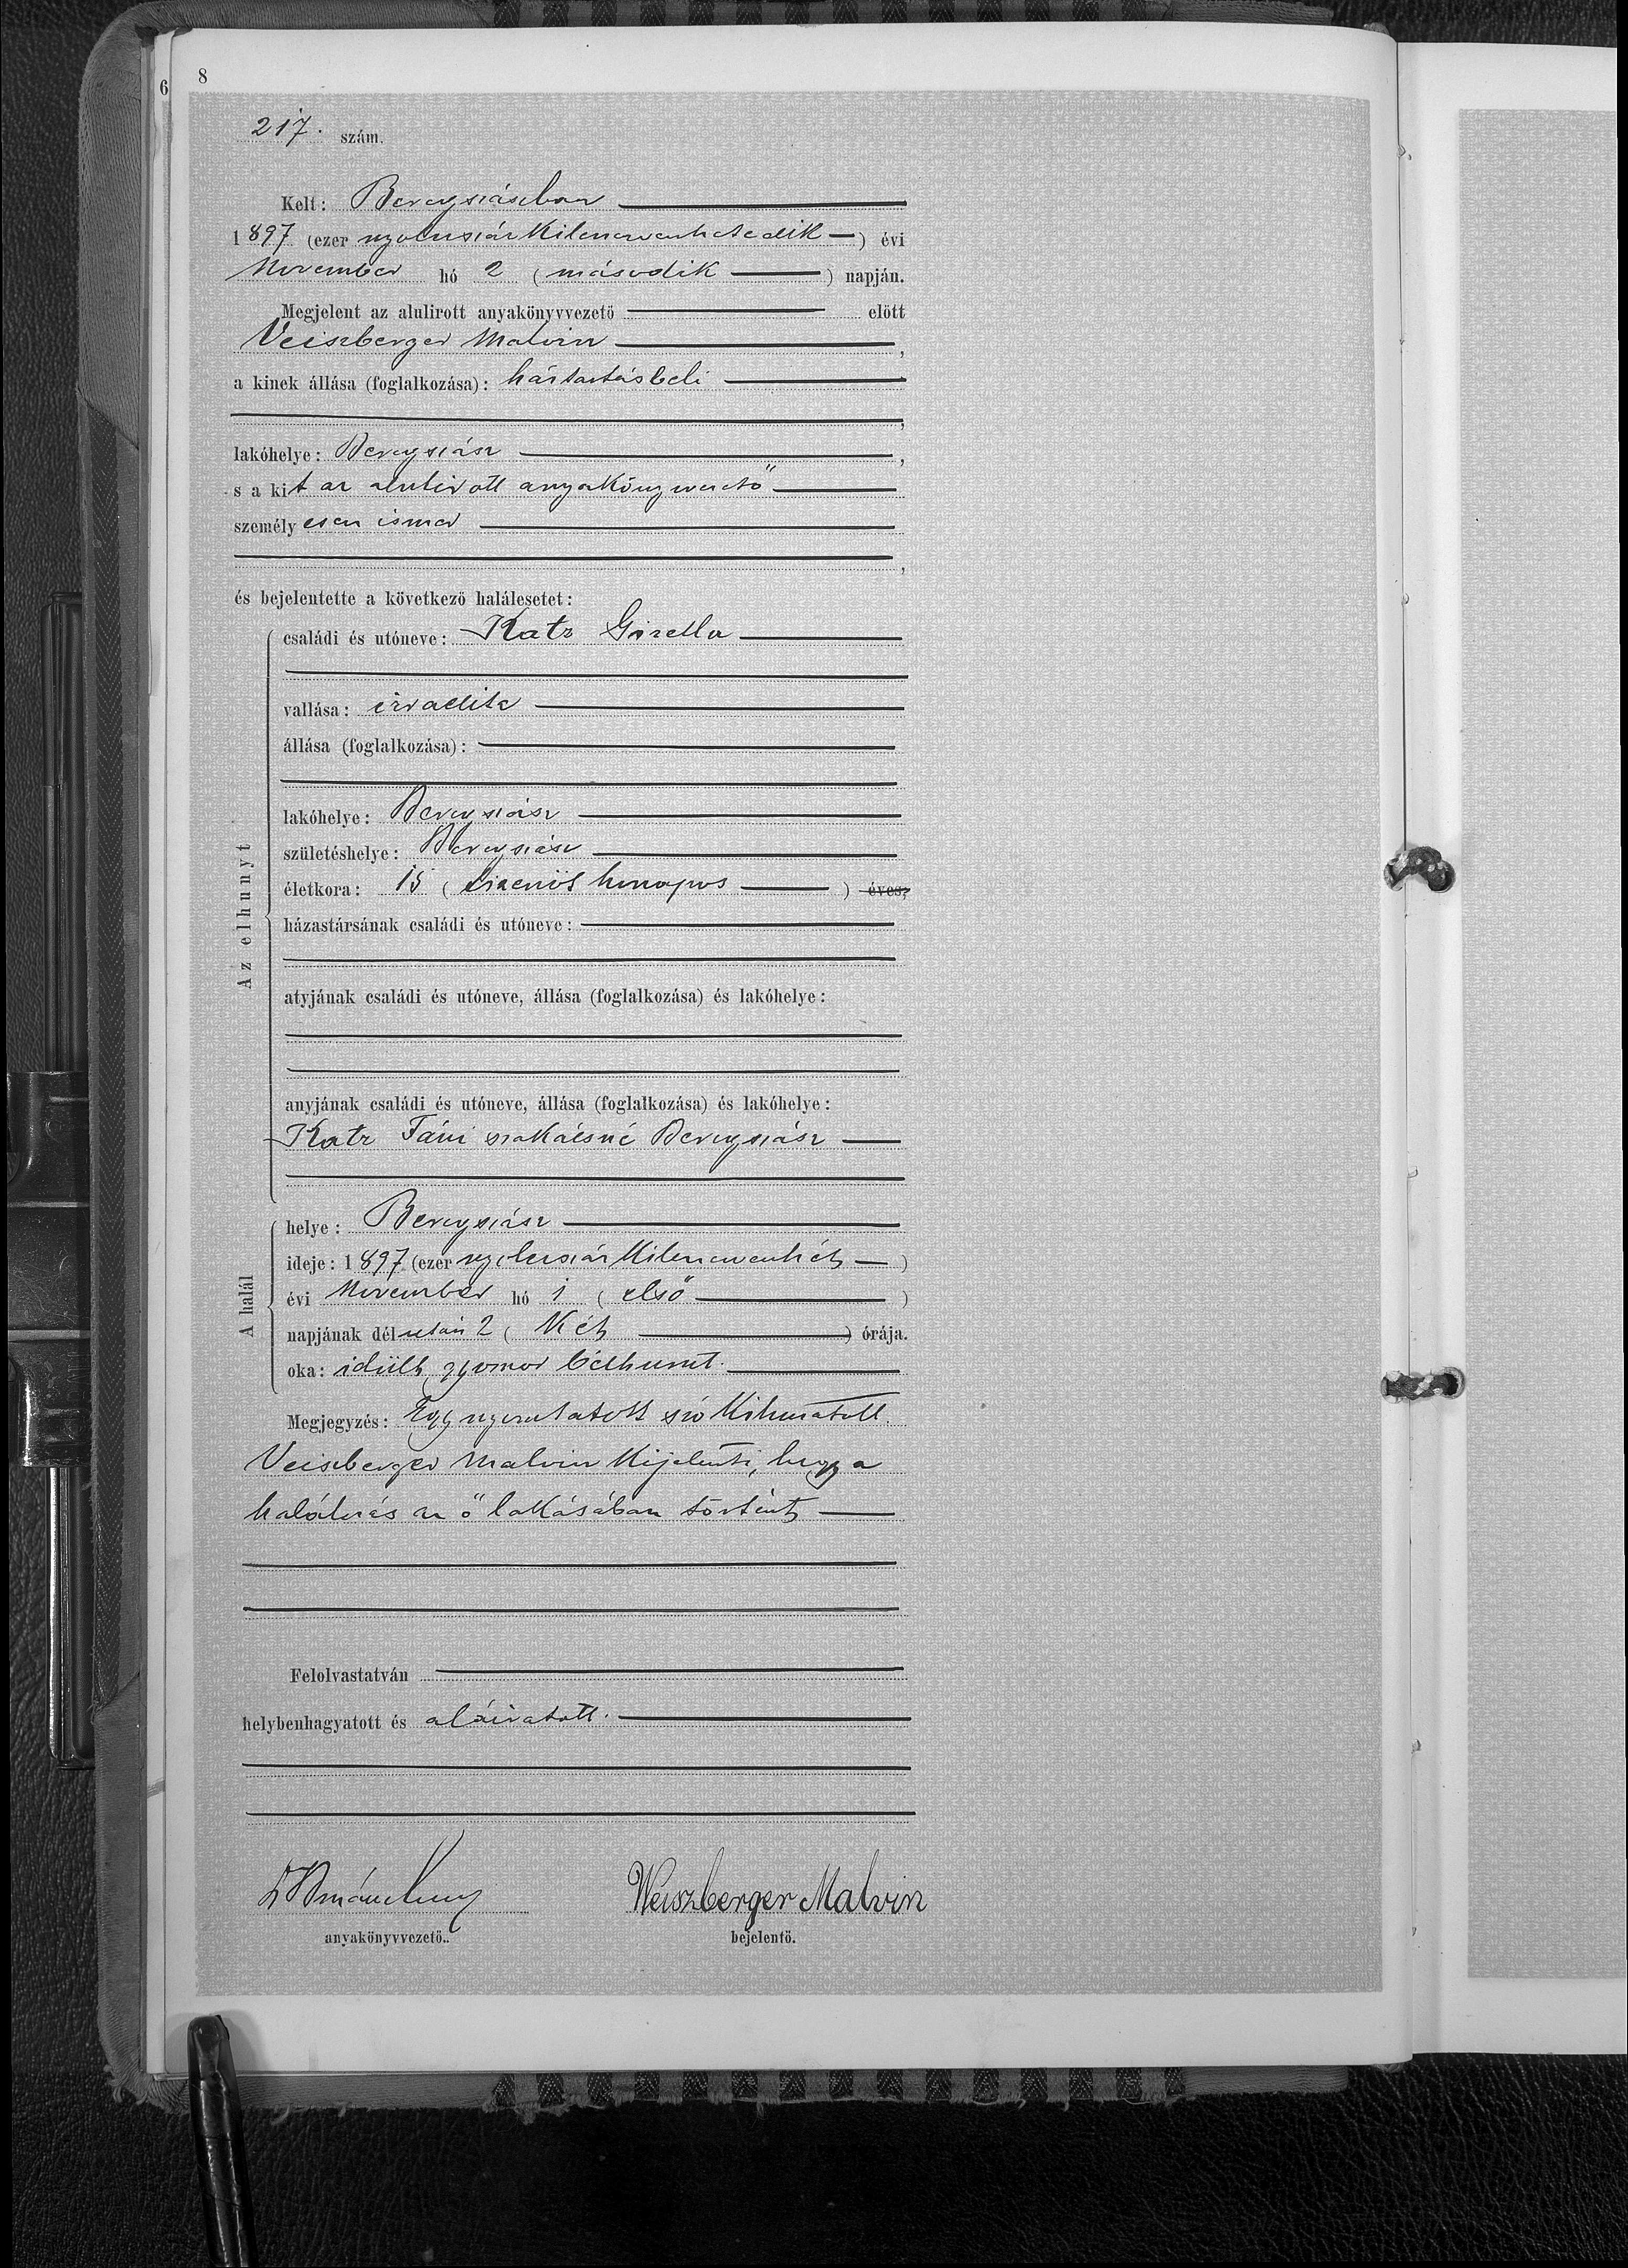 6
8
217. szám.
Kelt: Beregszászban
1897 (ezer nyolczszázkilenczvenhetedik) évi
November hó 2 (második) napján.
Megjelent az alulirott anyakönyvvezető előtt
Veiszberger Malvin,
a kinek állása (foglalkozása): háztartásbeli
,
lakóhelye: Beregszász,
s a kit az alulirott anyakönyvvezető
személyesen ismer
,
és bejelentette a következő halálesetet:
Az elhunyt
családi és utóneve: Katz Gizella
vallása: izraelita
állása (foglalkozása):
lakóhelye: Beregszász
születéshelye: Beregszász
életkora: 15 (tizenöt hónapos) éves;
házastársának családi és utóneve:
atyjának családi és utóneve, állása (foglalkozása) és lakóhelye:
anyjának családi és utóneve, állása (foglalkozása) és lakóhelye:
Katz Fáni szakácsné Beregszász
A halál
helye: Beregszász
ideje: 1897 (ezer nyolczszázkilenczvenhét)
évi November hó 1 (első)
napjának délután 2 (Két) órája.
oka: idült gyomor bélhurut.
Megjegyzés: Egy nyomtatott szó kihuzatott.
Veiszberger Malvin kijelenti, hogy a
halálozás az ő lakásában történt
Felolvastatván
helybenhagyatott és aláiratott.
Weiszberger Malvin
anyakönyvvezető..
bejelentő.